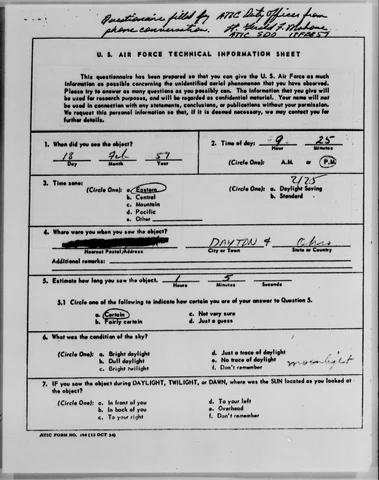 Questionaire filled by ATIC Duty Officer from
phone conversation. Lt. Gerald F.
ATIC SDO 18 Feb 57
U. S. AIR FORCE TECHNICAL INFORMATION SHEET
This questionnaire has been prepared so that you can give the U. S. Air Force as much
information as possible concerning the unidentified aerial phenomenon that you have observed.
Please try to answer as many questions as you possibly can. The information that you give will
be used for research purposes, and will be regarded as confidential material. Your name will not
be used in connection with any statements, conclusions, or publications without your permission.
We request this personal information so that, if it is deemed necessary, we may contact you for
further details.
1. When did you see the object?
18 Feb 57
Day Month Year
2. Time of day: 9 25
Hour Minutes
(Circle One): A.M. or P.M.
3. Time zone:
(Circle One): a. Eastern
b. Central
c. Mountain
d. Pacific
e. Other
2125
(Circle One): a. Daylight Saving
b. Standard
4. Where were you when you saw the object?
DAYTON 4 Ohio
Nearest Postal Address City or Town State or Country
Additional remarks:
5. Estimate how long you saw the object. 1 5
Hours Minutes Seconds
5.1 Circle one of the following to indicate how certain you are of your answer to Question 5.
a. Certain
b. Fairly certain
c. Not very sure
d. Just a guess
6. What was the condition of the sky?
(Circle One): a. Bright daylight
b. Dull daylight
c. Bright twilight
d. Just a trace of daylight
e. No trace of daylight
f. Don't remember
moonlight
7. IF you saw the object during DAYLIGHT, TWILIGHT, or DAWN, where was the SUN located as you looked at
the object?
(Circle One): a. In front of you
b. In back of you
c. To your right
d. To your left
e. Overhead
f. Don't remember
ATIC FORM NO. 164 (13 OCT 54)